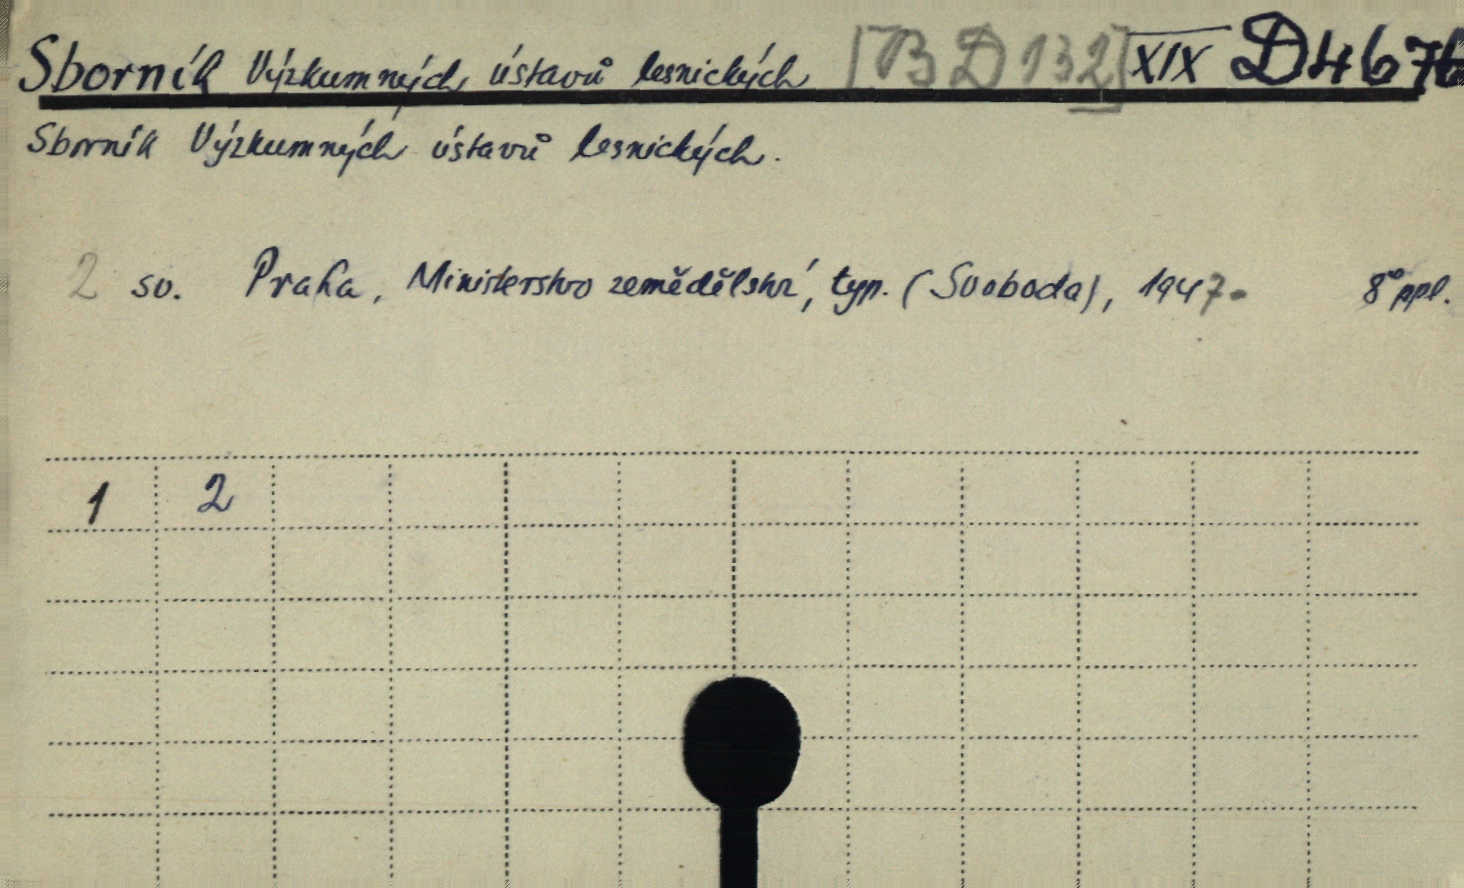 Sborník Výzkumných ústavů lesnických [TB D 132] XIX D 4676
Sborník Výzkumných ústavů lesnických.
2 sv. Praha, Ministerstvo zemědělství, typ. (Svoboda), 1947. 8° ppl.
1 2